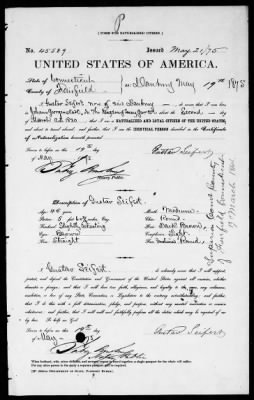 P
[FORM FOR NATURALIZED CITIZEN.]
No. 45589 Issued May 21/75
UNITED STATES OF AMERICA.
State of Connecticut
County of Fairfield } Danbury May 19th 1875
I Gustav Seifert now of said Danbury do swear that I was born
in the on or about the second day of
March A.D. 1830 that I am a NATURALIZED AND LOYAL CITIZEN OF THE UNITED STATES,
and about to travel abroad; and further, that I am the IDENTICAL PERSON described in the Certificate
of Naturalization herewith presented.
Sworn to before me this 19th day
of May 1875
Gustav Seifert
Notary Public.
Superior Court County
of Fairfield Connecticut
9 March
Description of Gustav Seifert.
Age: 45 years
Stature: feet inches, Eng.
Forehead: Slightly Retreating
Eyes: Brown
Nose: Straight
Mouth: Medium
Chin: Round
Hair: Dark Brown
Complexion: Light
Face: Medium Round
I, Gustav Seifert, do solemnly swear that I will support,
protect, and defend the Constitution and Government of the United States against all enemies, whether
domestic or foreign; and that I will bear true faith, allegiance, and loyalty to the same, any ordinance,
resolution, or law of any State, Convention, or Legislature to the contrary notwithstanding; and further, that
I do this with a full determination, pledge, and purpose, without any mental reservation or evasion
whatsoever; and further, that I will well and faithfully perform all the duties which may be required of me
by law. So help me God.
Sworn to before me this 19th day
of May 1875
Gustav Seifert
Notary Public
When husband, wife, minor children, and servants expect to travel together, a single passport for the whole will suffice.
For any other person in the party a separate passport will be required.